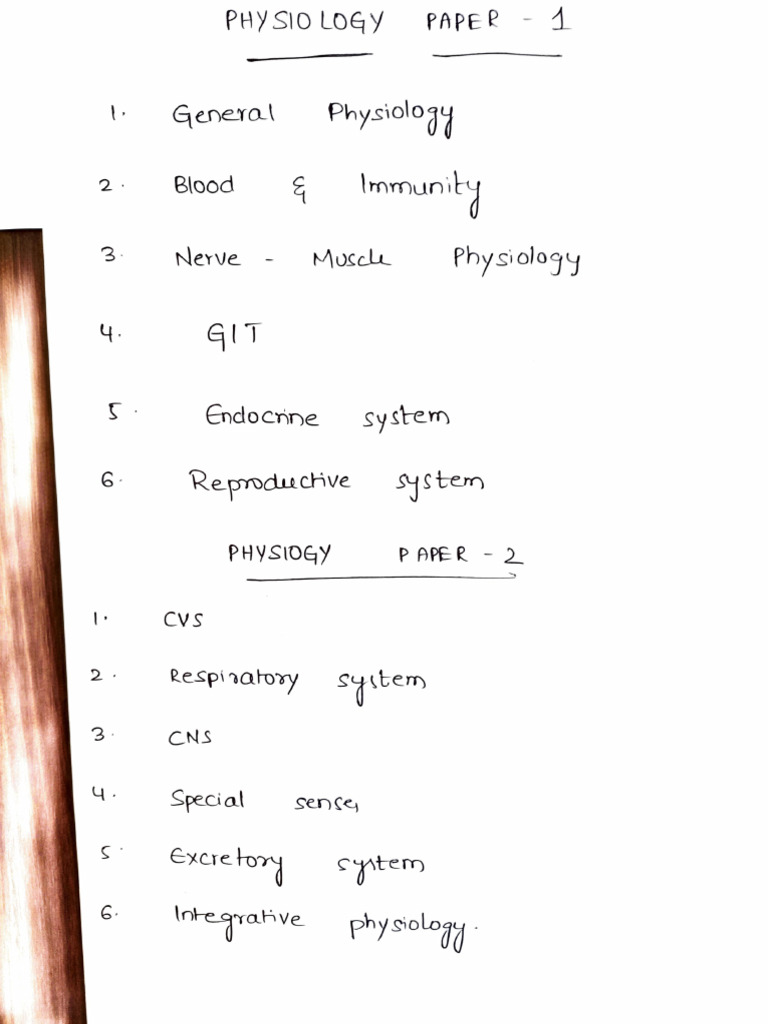 PHYSIOLOGY PAPER - 1
1. General Physiology
2. Blood & Immunity
3. Nerve - Muscle Physiology
4. GIT
5. Endocrine system
6. Reproductive system
PHYSIOGY PAPER - 2
1. CVS
2. Respiratory system
3. CNS
4. Special senses
5. Excretory system
6. Integrative physiology.